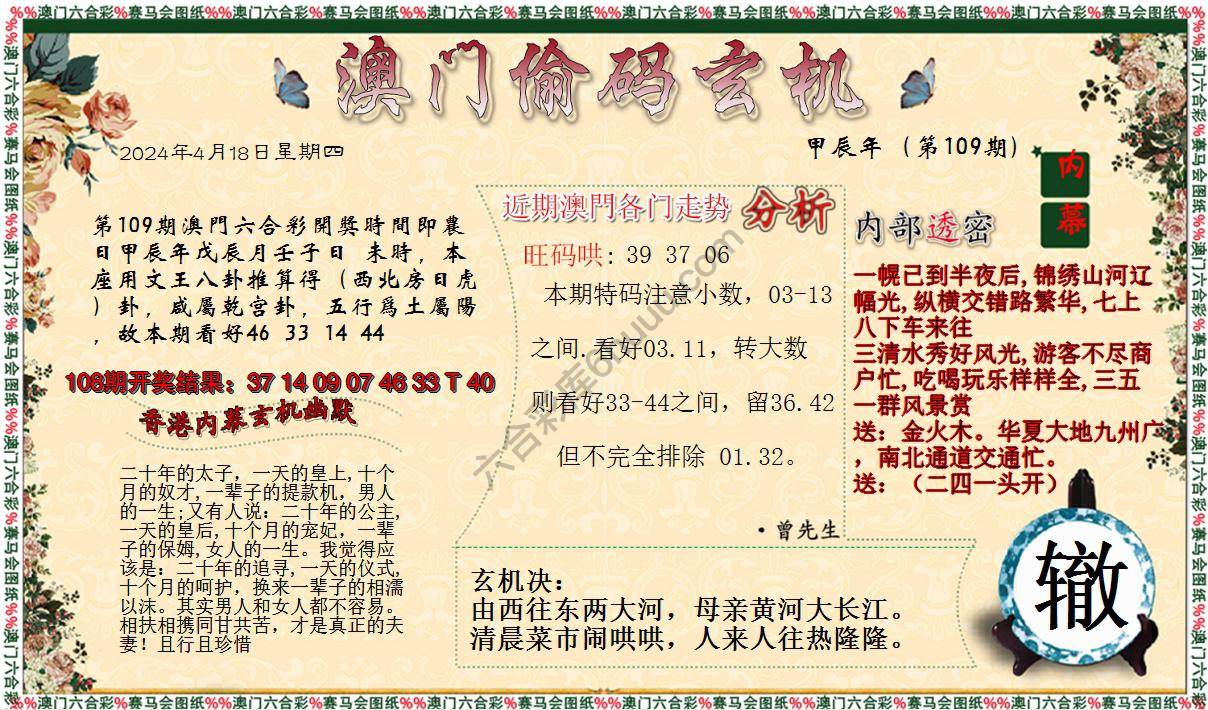 %%澳门六合彩%赛马会图纸%%澳门六合彩%赛马会图纸%%澳门六合彩%赛马会图纸%%澳门六合彩%赛马会图纸%%澳门六合彩%赛马会图纸%%澳门六合彩%赛马会图纸%%
澳门偷码玄机
2024年4月18日星期四
甲辰年（第109期）
内幕
第109期澳門六合彩開獎時間即農
日甲辰年戊辰月壬子日 未時，本
座用文王八卦推算得（西北房日虎
）卦，咸屬乾宫卦，五行爲土屬陽
，故本期看好46 33 14 44
108期开奖结果：37 14 09 07 46 33 T 40
香港内幕玄机幽默
二十年的太子，一天的皇上,十个
月的奴才,一辈子的提款机，男人
的一生;又有人说：二十年的公主,
一天的皇后,十个月的宠妃，一辈
子的保姆,女人的一生。我觉得应
该是：二十年的追寻,一天的仪式,
十个月的呵护，换来一辈子的相濡
以沫。其实男人和女人都不容易。
相扶相携同甘共苦，才是真正的夫
妻！且行且珍惜
近期澳門各门走势 分析
旺码哄: 39 37 06
本期特码注意小数，03-13
之间.看好03.11，转大数
则看好33-44之间，留36.42
但不完全排除 01.32。
·曾先生
内部透密
一幌已到半夜后,锦绣山河辽
幅光,纵横交错路繁华,七上
八下车来往
三清水秀好风光,游客不尽商
户忙,吃喝玩乐样样全,三五
一群风景赏
送：金火木。华夏大地九州广
，南北通道交通忙。
送：（二四一头开）
玄机决：
由西往东两大河，母亲黄河大长江。
清晨菜市闹哄哄，人来人往热隆隆。
辙
%%澳门六合彩%赛马会图纸%%澳门六合彩%赛马会图纸%%澳门六合彩%赛马会图纸%%澳门六合彩%赛马会图纸%%澳门六合彩%赛马会图纸%%澳门六合彩%赛马会图纸%%